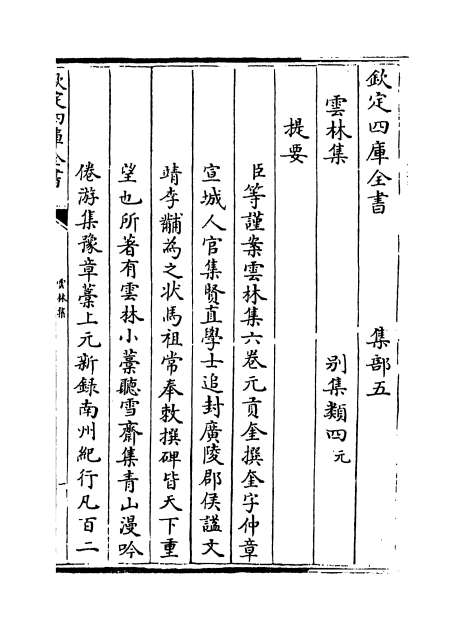 欽定四庫全書　集部五
雲林集　別集類四元
提要
臣等謹案雲林集六卷元貢奎撰奎字仲章
宣城人官集賢直學士追封廣陵郡侯諡文
靖李黼為之狀馬祖常奉敕撰碑皆天下重
望也所著有雲林小藁聽雪齋集青山漫吟
倦游集豫章藁上元新錄南州紀行凡百二
欽定四庫全書
雲林集
一